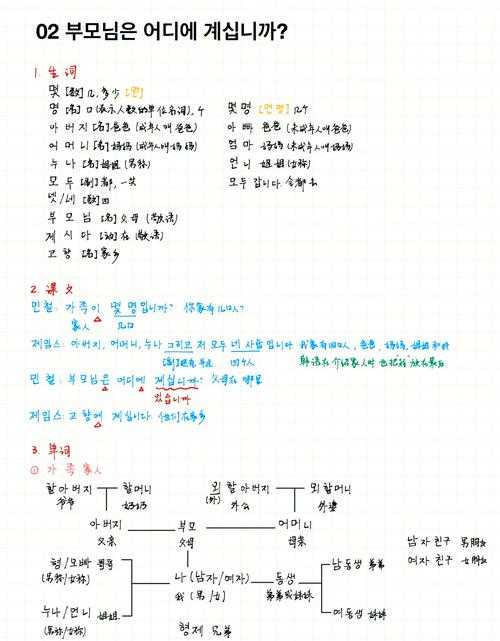 02 부모님은 어디에 계십니까?
1. 生词
몇 [数] 几, 多少 [면]
명 [名] 口(表示人数的单位名词), 个 몇 명 [면명] 几个
아버지 [名] 爸爸 (成年人喊爸爸) 아빠 爸爸 (未成年人喊爸爸)
어머니 [名] 妈妈 (成年人喊妈妈) 엄마 妈妈 (未成年人喊妈妈)
누나 [名] 姐姐 (男称) 언니 姐姐 (女称)
모두 [副] 都, 一共 모두 갑니다 全都去
넷/네 [数] 四
부모님 [名] 父母 (敬语)
계시다 [动] 在 (敬语)
고향 [名] 家乡
2. 课文
민철: 가족이 몇 명입니까? 你家有几口人?
家人 几口
제임스: 아버지, 어머니, 누나 그리고 저 모두 네 사람입니다 我家有四口人, 爸爸, 妈妈, 姐姐和我
四个人 韩语在介绍家人时
민철: 부모님은 어디에 계십니까? 父母在哪里
있습니까
제임스: 고향에 계십니다. 他们在家乡
3. 单词
① 가족 家人
할아버지 할머니 외할아버지 외할머니
爷爷 奶奶 (外) 外公 外婆
아버지 부모 어머니
父亲 父母 母亲
남자친구 男朋友
여자친구 女朋友
형/오빠 哥哥
(男称/女称)
나 (남자/여자) 동생 남동생 弟弟
我 (男/女) 弟弟或妹妹
누나/언니 姐姐 여동생 妹妹
(男称/女称)
형제 兄弟